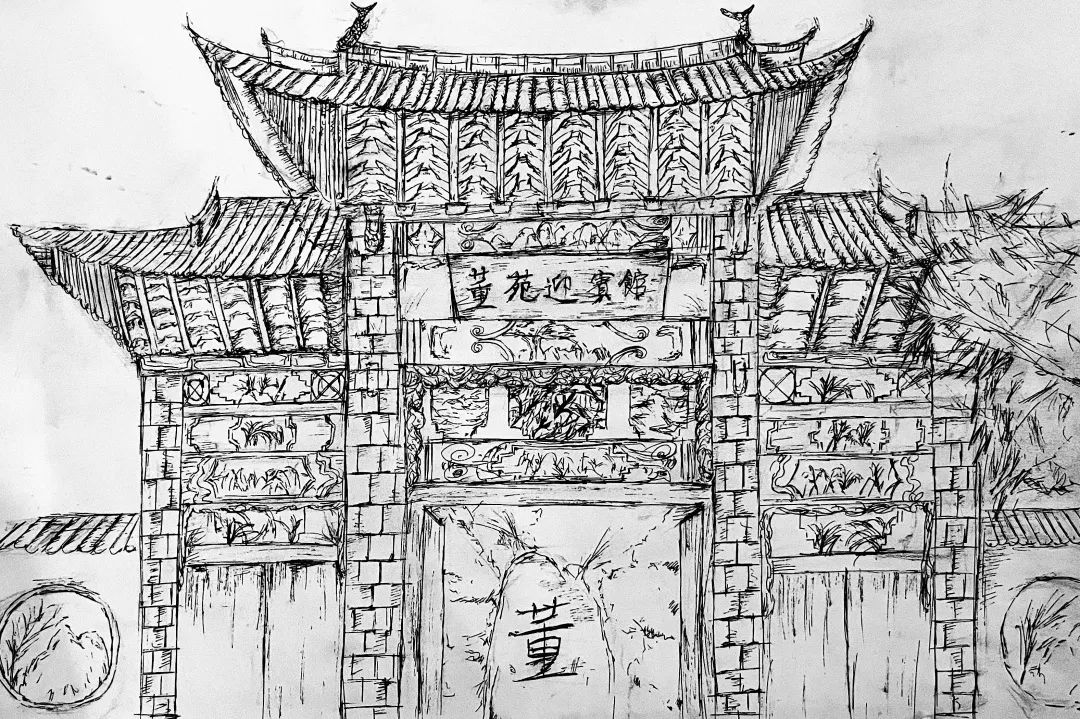 董苑迎宾館
董